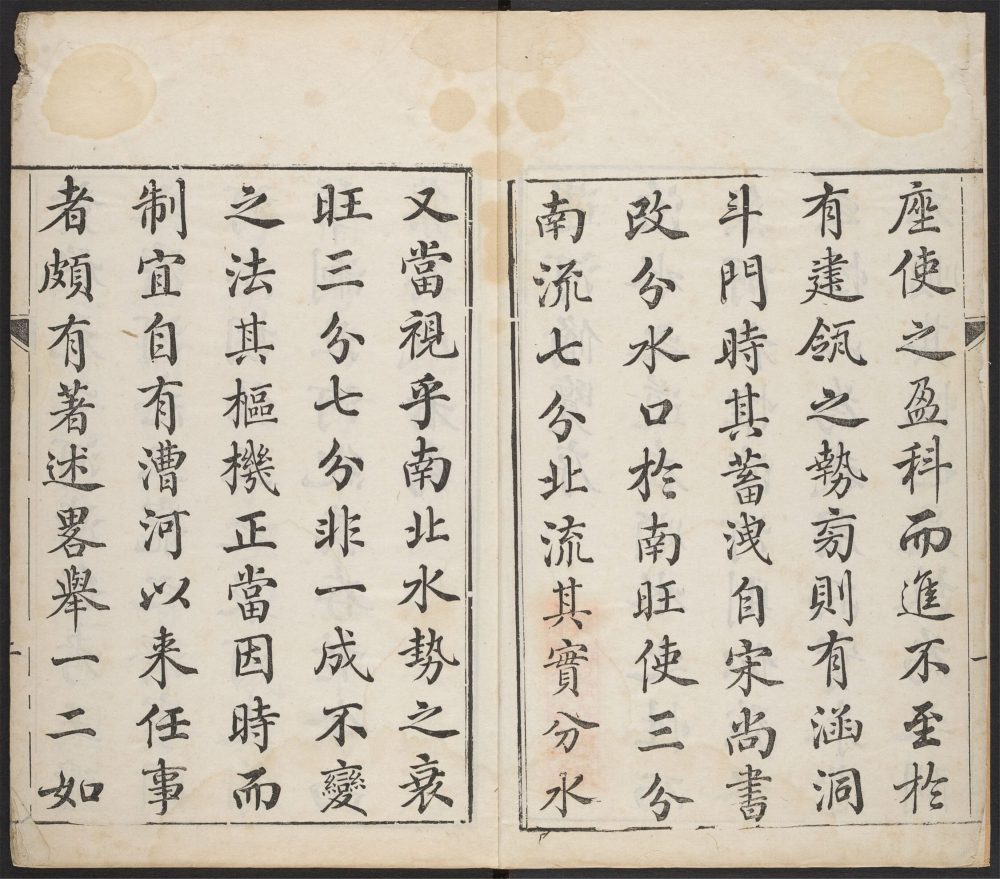 座使之盈科而進不至於
有建瓴之勢旁則有涵洞
斗門時其蓄洩自宋尚書
改分水口於南旺使三分
南流七分北流其實分水
又當視乎南北水勢之衰
旺三分七分非一成不變
之法其樞機正當因時而
制宜自有漕河以来任事
者頗有著述畧舉一二如